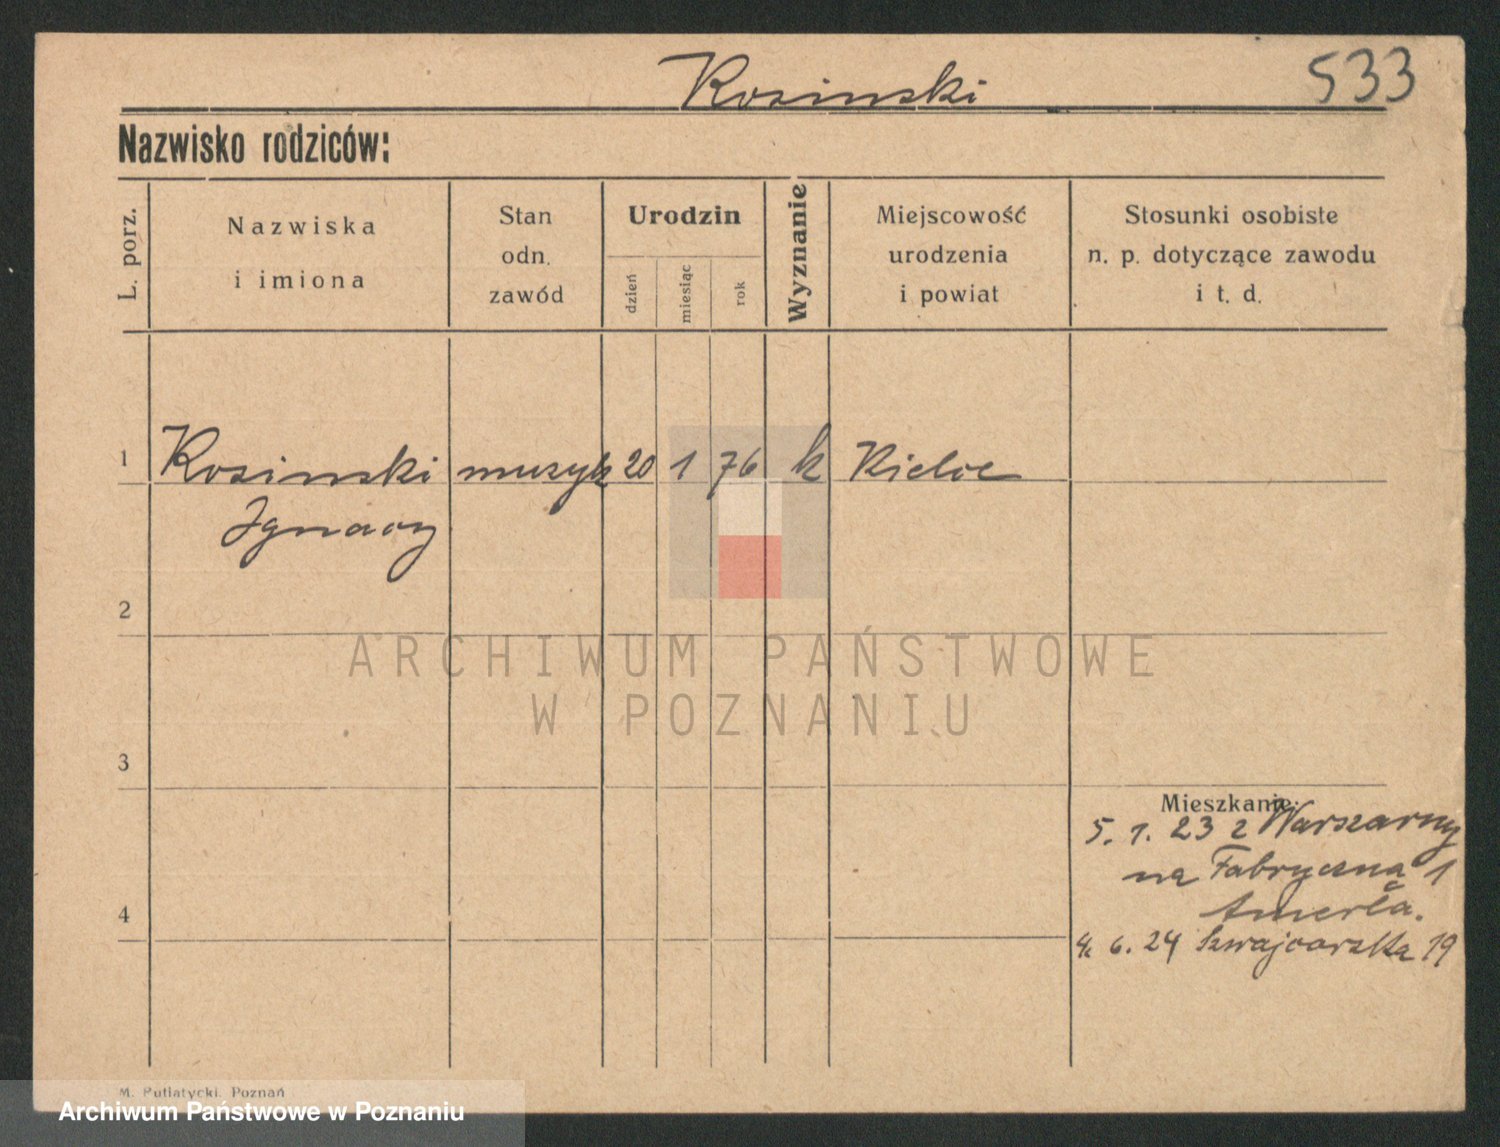 Rosinski 533
Nazwisko rodziców:
L. porz.
Nazwiska
i imiona
Stan
odn.
zawód
Urodzin
dzień
miesiąc
rok
Wyznanie
Miejscowość
urodzenia
i powiat
Stosunki osobiste
n. p. dotyczące zawodu
i t. d.
1 Rosinski muzyk 20 1 76 k Kielce
Ignacy
2
ARCHIWUM PAŃSTWOWE
W POZNANIU
3
Mieszkanie:
5. 1. 23 z Warszawy
na Fabryczną 1
4
4. 6. 24 Szwajcarska 19
M. Putiatycki, Poznań
Archiwum Państwowe w Poznaniu